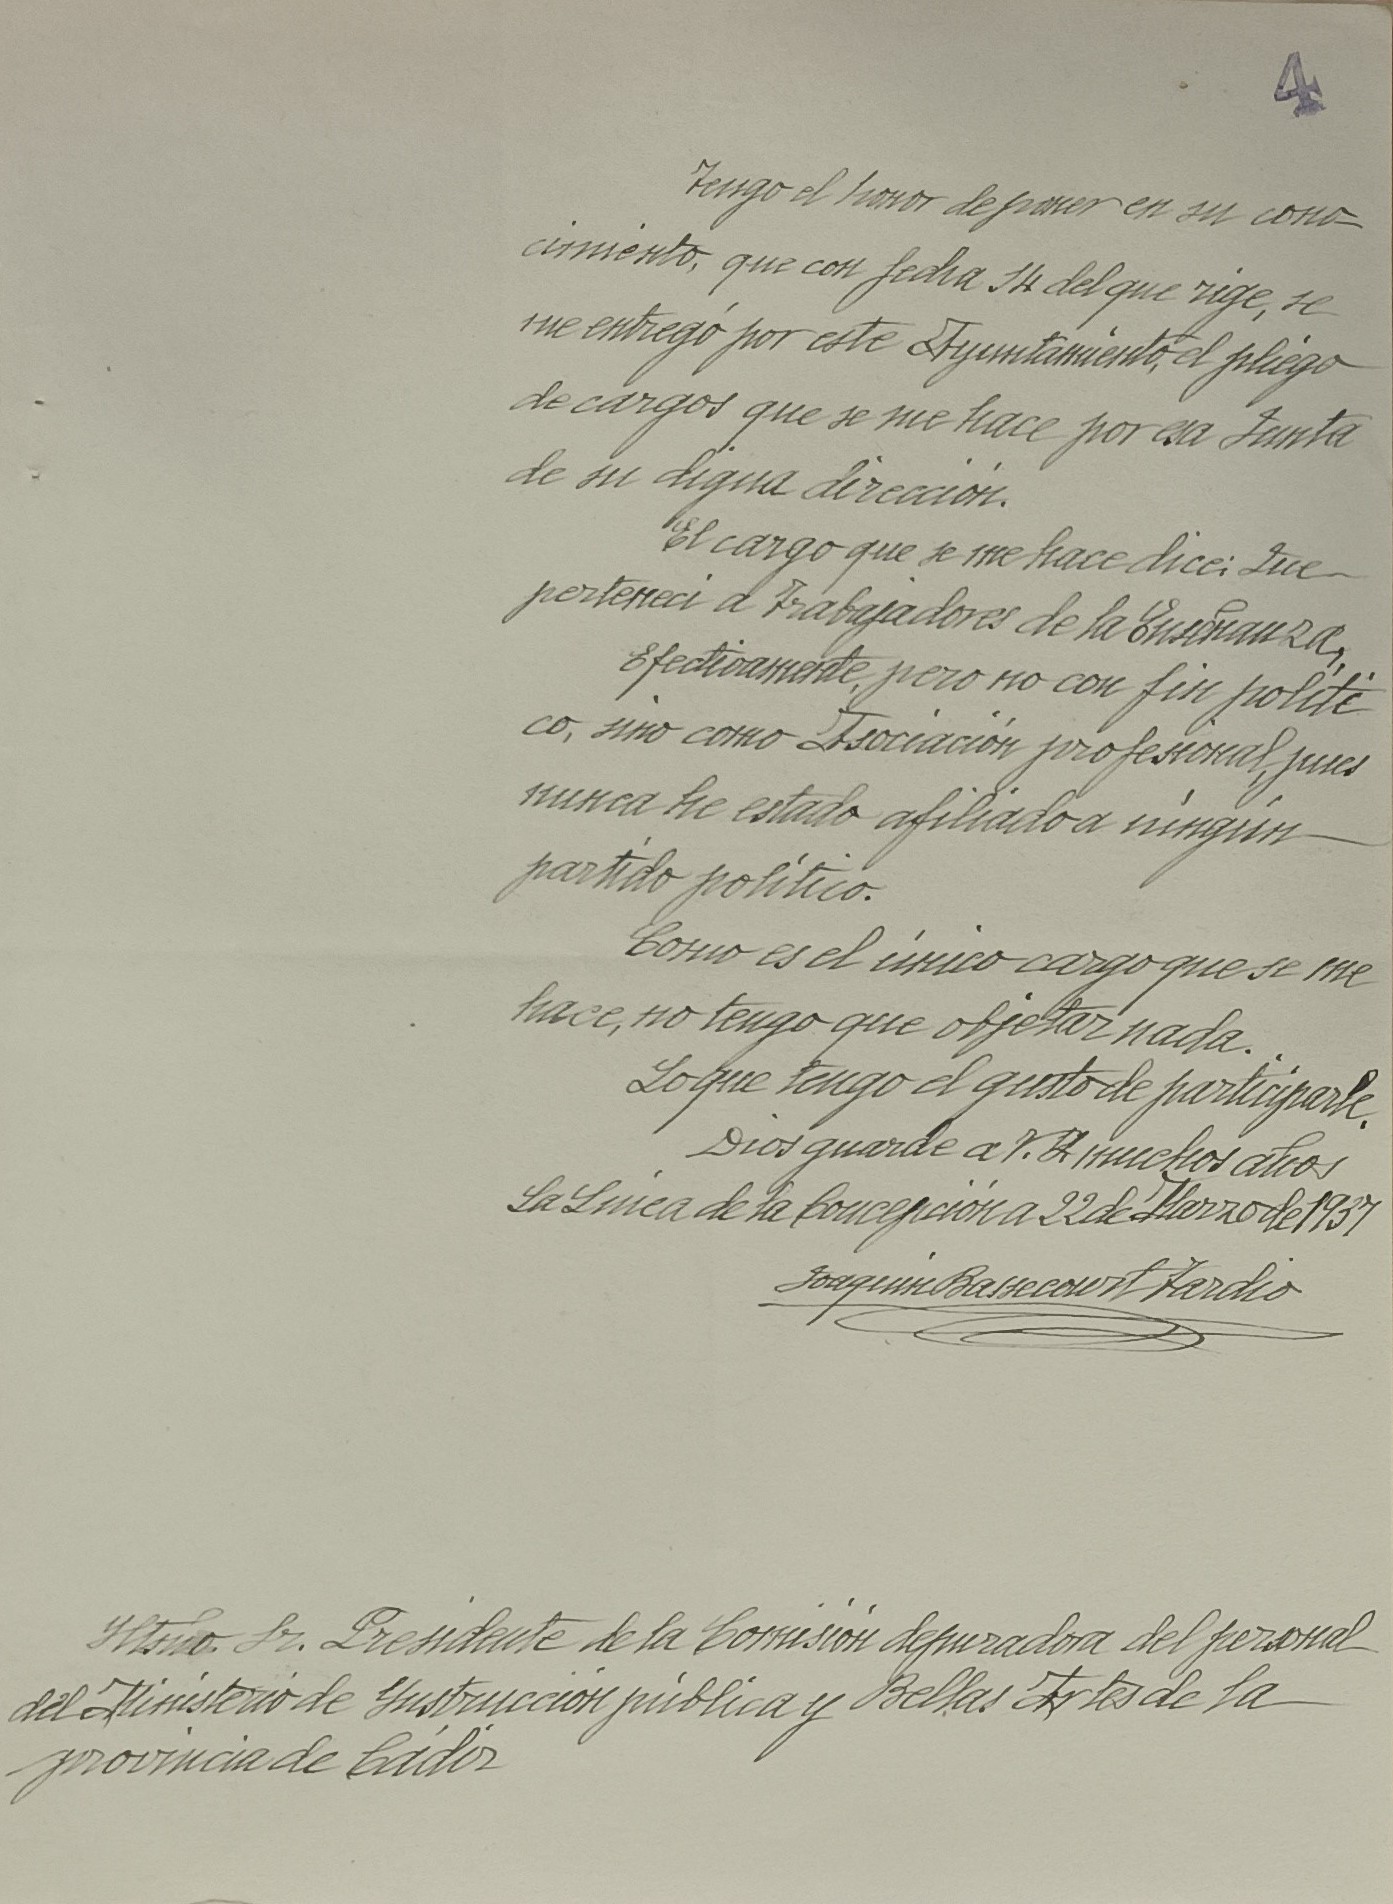 4
Tengo el honor de poner en su cono-
cimiento, que con fecha 14 del que rige, se
me entregó por este Ayuntamiento, el pliego
de cargos que se me hace por esa Junta
de su digna dirección.
El cargo que se me hace dice: Que
pertenecí a Trabajadores de la Enseñanza,
Efectivamente, pero no con fin políti
co, sino como Asociación profesional, pues
nunca he estado afiliado a ningún
partido político.
Como es el único cargo que se me
hace, no tengo que objetar nada.
Lo que tengo el gusto de participarle.
Dios guarde a V. I. muchos años
La Línea de la Concepción a 22 de Marzo de 1937
Joaquín Bassecourt Tardio
Iltmo. Sr. Presidente de la Comisión depuradora del personal
del Ministerio de Instrucción pública y Bellas Artes de la
provincia de Cádiz